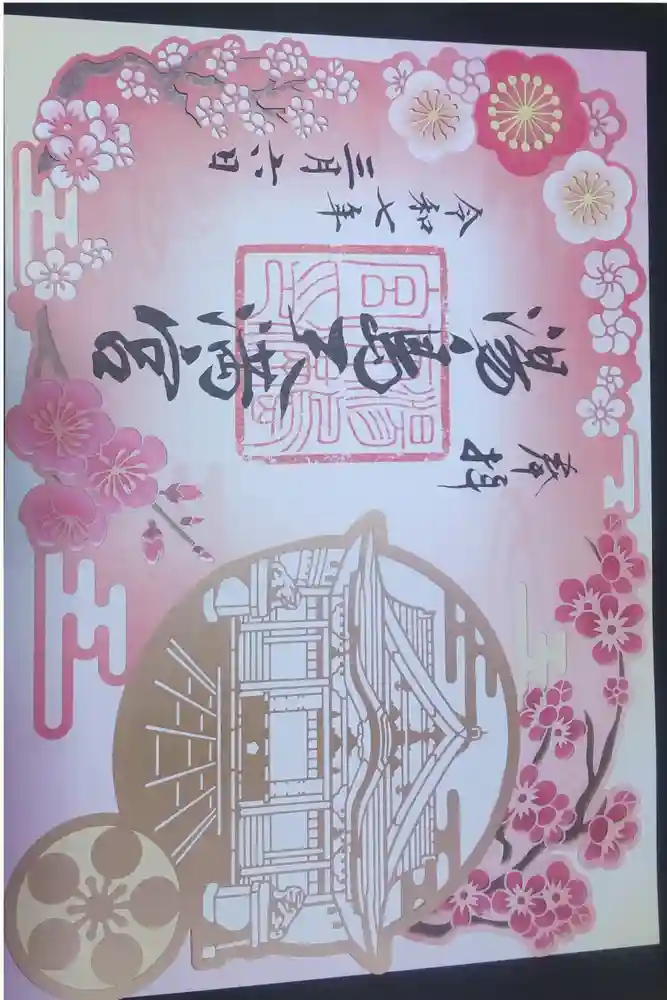 奉拝
湯島天満宮
令和七年
三月六日